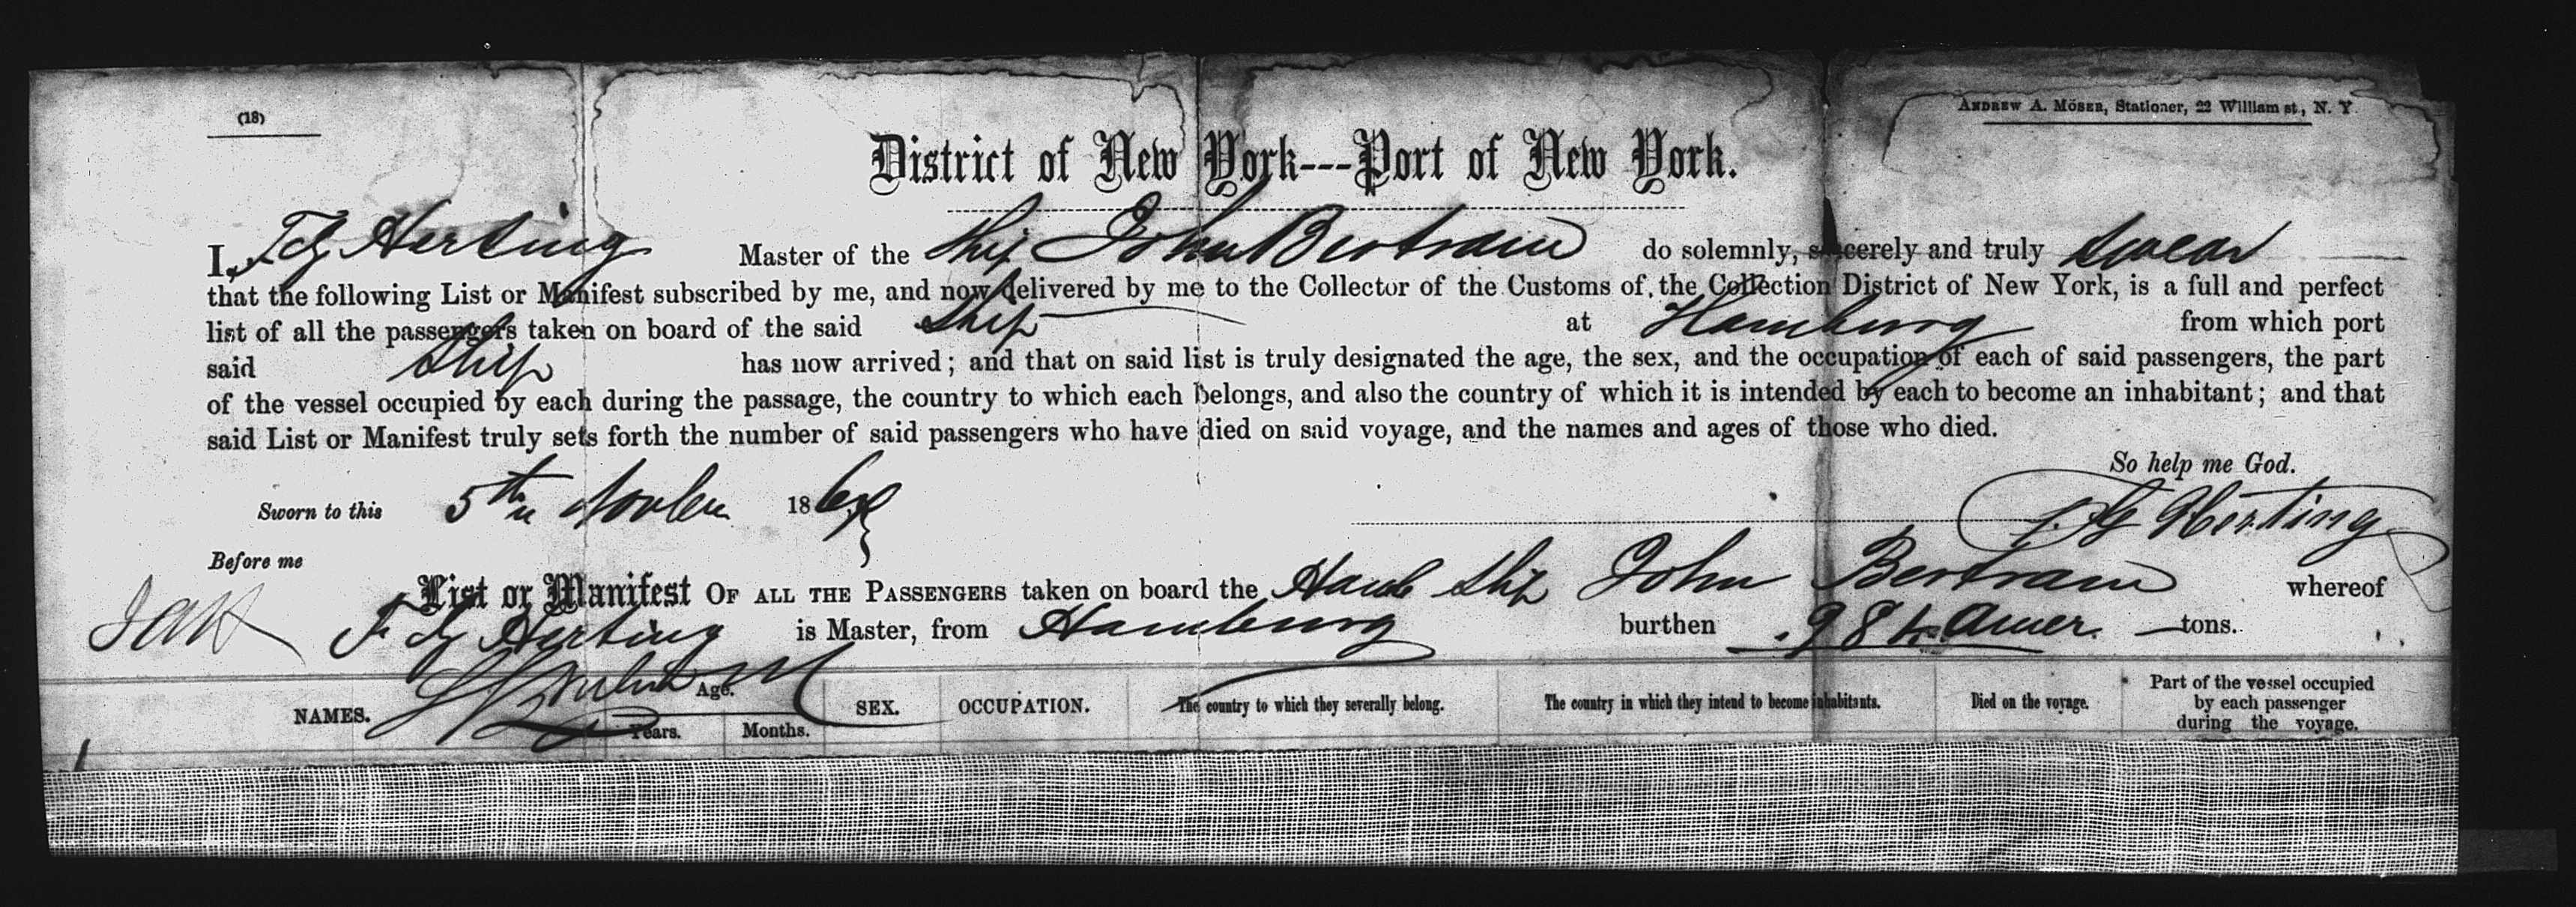 (18)
ANDREW A. MÖSER, Stationer, 22 William st., N. Y.
District of New York---Port of New York.
I, Herting Master of the Ship John Bertram do solemnly, sincerely and truly swear
that the following List or Manifest subscribed by me, and now delivered by me to the Collector of the Customs of the Collection District of New York, is a full and perfect
list of all the passengers taken on board of the said Ship at Hamburg from which port
said Ship has now arrived; and that on said list is truly designated the age, the sex, and the occupation of each of said passengers, the part
of the vessel occupied by each during the passage, the country to which each belongs, and also the country of which it is intended by each to become an inhabitant; and that
said List or Manifest truly sets forth the number of said passengers who have died on said voyage, and the names and ages of those who died.
So help me God.
Sworn to this 5th 186 Herting
Before me
List or Manifest OF ALL THE PASSENGERS taken on board the Hamb Ship John Bertram whereof
Herting is Master, from Hamburg burthen 984 Amer. tons.
NAMES. Age. Years. Months. SEX. OCCUPATION. The country to which they severally belong. The country in which they intend to become inhabitants. Died on the voyage. Part of the vessel occupied by each passenger during the voyage.